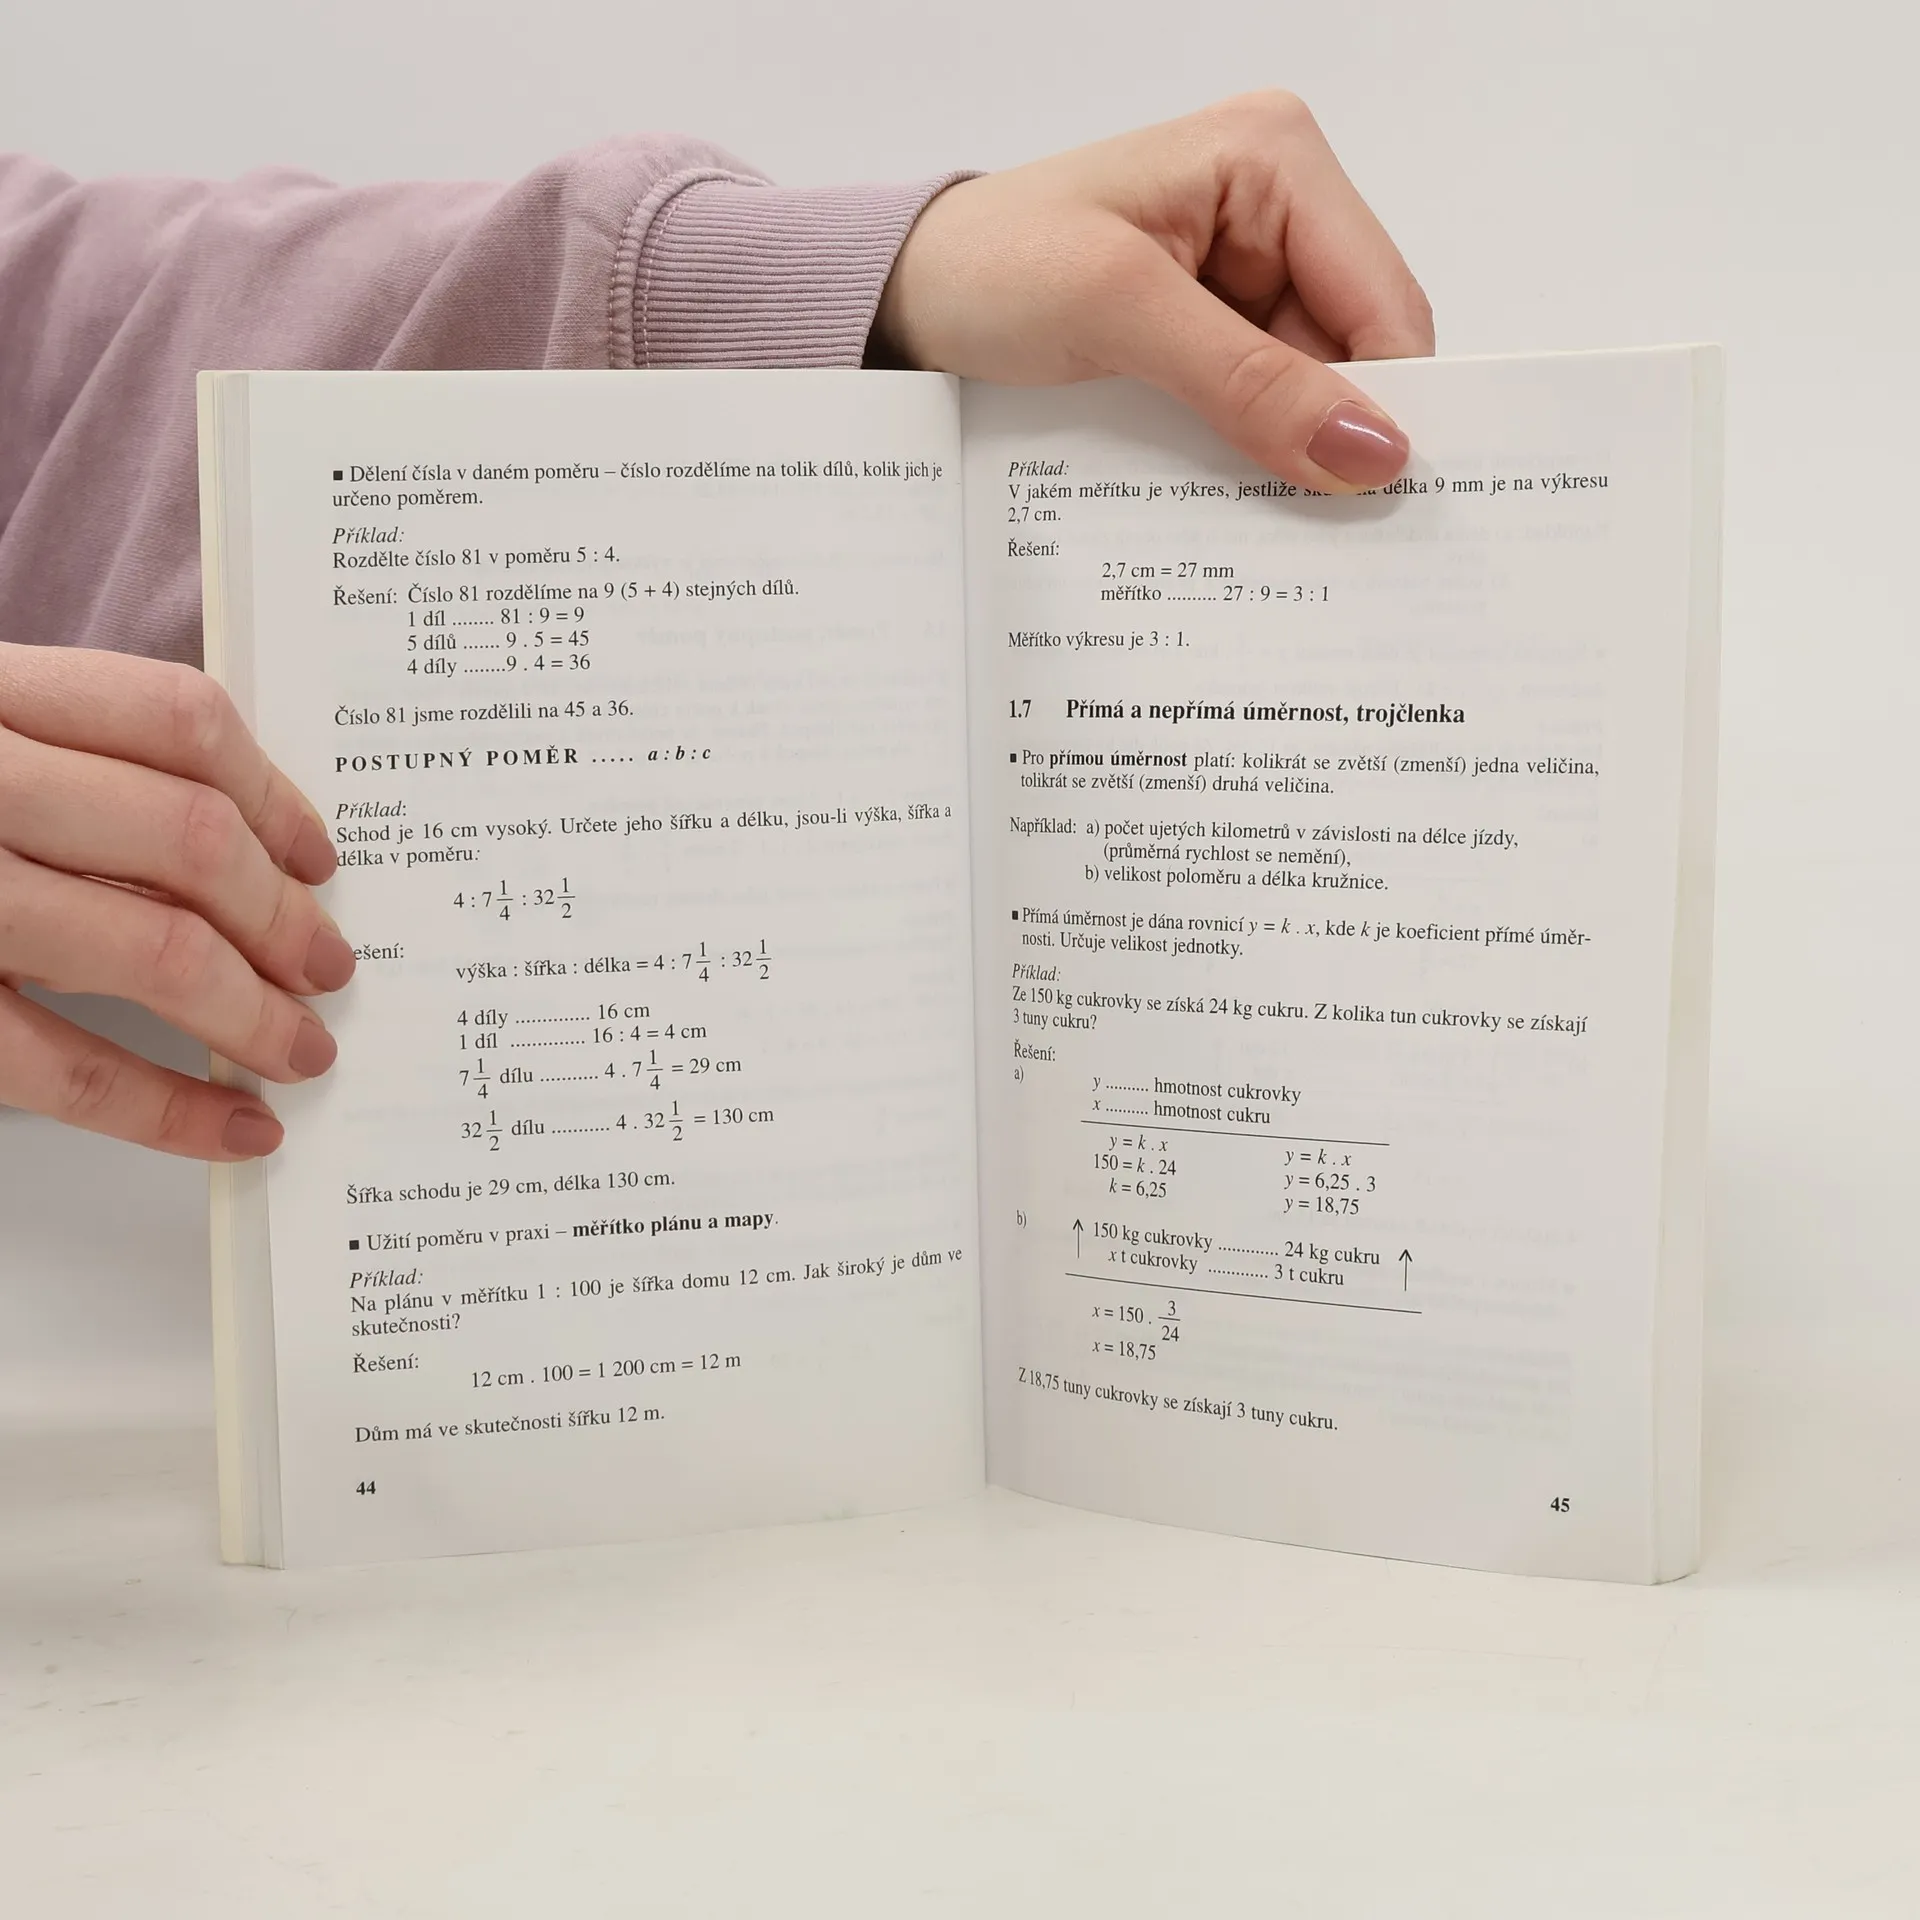 ▪ Dělení čísla v daném poměru – číslo rozdělíme na tolik dílů, kolik jich je
určeno poměrem.
Příklad:
Rozdělte číslo 81 v poměru 5 : 4.
Řešení: Číslo 81 rozdělíme na 9 (5 + 4) stejných dílů.
1 díl ........ 81 : 9 = 9
5 dílů ....... 9 . 5 = 45
4 díly ........9 . 4 = 36
Číslo 81 jsme rozdělili na 45 a 36.
POSTUPNÝ POMĚR ..... a : b : c
Příklad:
Schod je 16 cm vysoký. Určete jeho šířku a délku, jsou-li výška, šířka a
délka v poměru:
4 : 7 1/4 : 32 1/2
ešení:
výška : šířka : délka = 4 : 7 1/4 : 32 1/2
4 díly .............. 16 cm
1 díl .............. 16 : 4 = 4 cm
7 1/4 dílu ........... 4 . 7 1/4 = 29 cm
32 1/2 dílu ........... 4 . 32 1/2 = 130 cm
Šířka schodu je 29 cm, délka 130 cm.
▪ Užití poměru v praxi – měřítko plánu a mapy.
Příklad:
Na plánu v měřítku 1 : 100 je šířka domu 12 cm. Jak široký je dům ve
skutečnosti?
Řešení:
12 cm . 100 = 1 200 cm = 12 m
Dům má ve skutečnosti šířku 12 m.
44
Příklad:
V jakém měřítku je výkres, jestliže délka 9 mm je na výkresu
2,7 cm.
Řešení:
2,7 cm = 27 mm
měřítko .......... 27 : 9 = 3 : 1
Měřítko výkresu je 3 : 1.
1.7 Přímá a nepřímá úměrnost, trojčlenka
▪ Pro přímou úměrnost platí: kolikrát se zvětší (zmenší) jedna veličina,
tolikrát se zvětší (zmenší) druhá veličina.
Například: a) počet ujetých kilometrů v závislosti na délce jízdy,
(průměrná rychlost se nemění),
b) velikost poloměru a délka kružnice.
▪ Přímá úměrnost je dána rovnicí y = k . x, kde k je koeficient přímé úměr-
nosti. Určuje velikost jednotky.
Příklad:
Ze 150 kg cukrovky se získá 24 kg cukru. Z kolika tun cukrovky se získají
3 tuny cukru?
Řešení:
a)
y .......... hmotnost cukrovky
x .......... hmotnost cukru
y = k . x y = k . x
150 = k . 24 y = 6,25 . 3
k = 6,25 y = 18,75
b) ↑ 150 kg cukrovky ............. 24 kg cukru ↑
x t cukrovky ............. 3 t cukru
x = 150 . 3/24
x = 18,75
Z 18,75 tuny cukrovky se získají 3 tuny cukru.
45